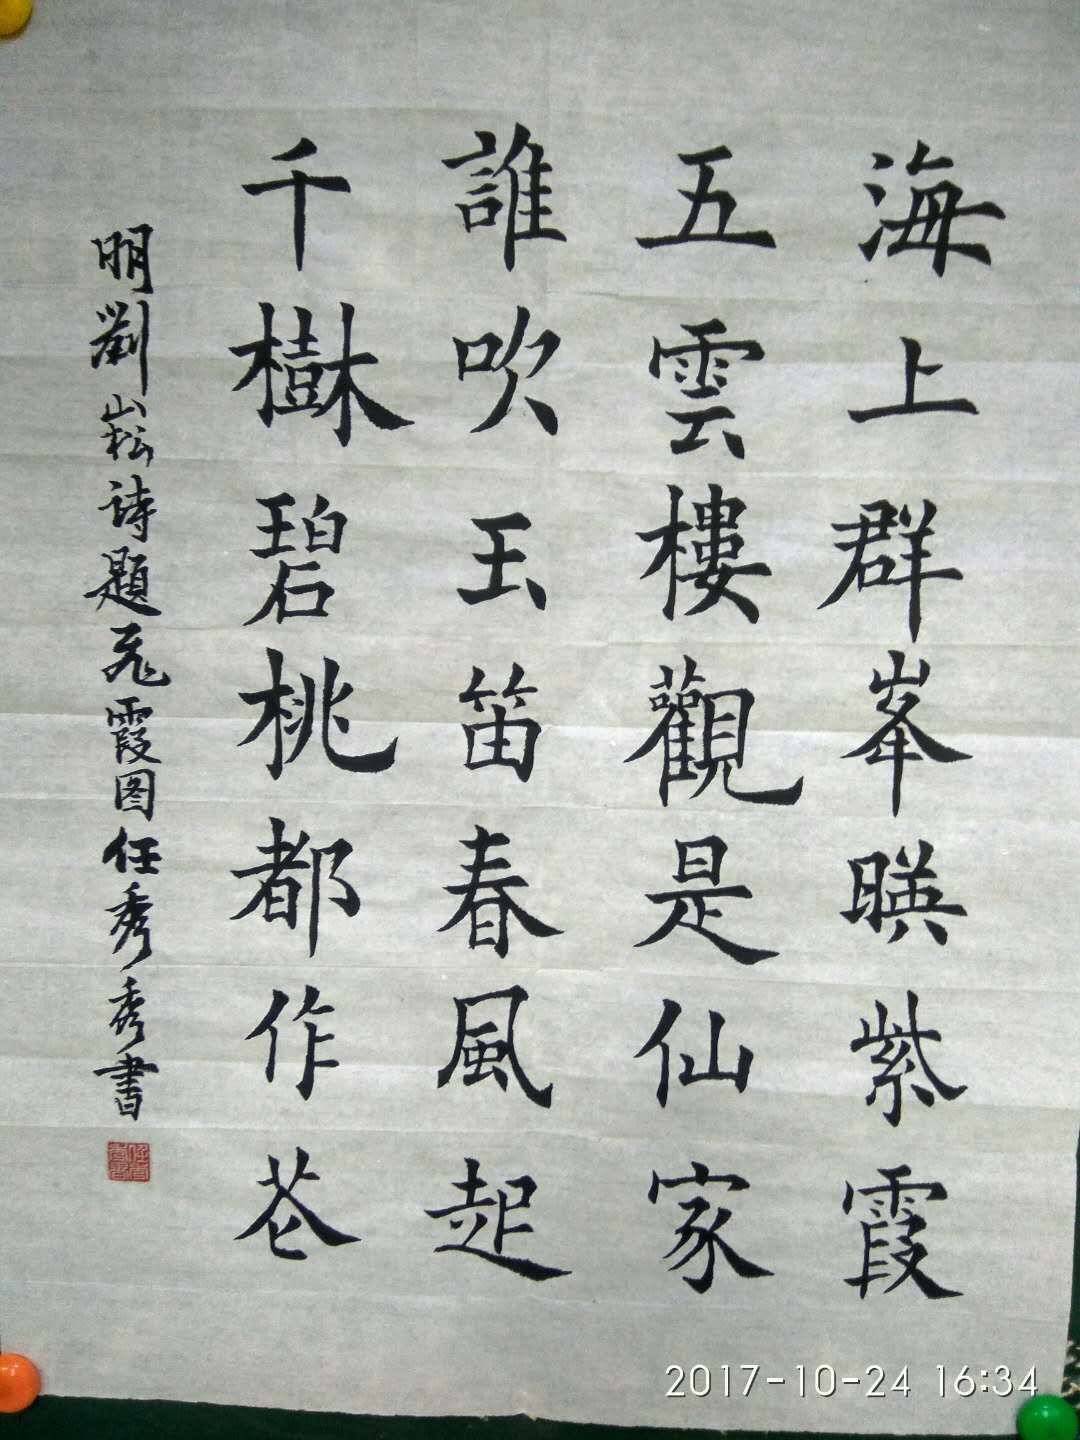 海上群峯暎紫霞
五雲樓觀是仙家
誰吹玉笛春風起
千樹碧桃都作花
明劉崧詩題飛霞图任秀秀書
2017-10-24 16:34